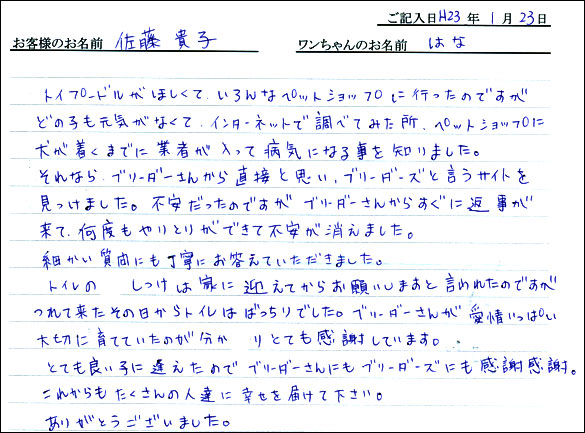 ご記入日H23年1月23日
お客様のお名前 佐藤 貴子 ワンちゃんのお名前 はな
トイプードルがほしくて、いろんなペットショップに行ったのですが
どの子も元気がなくて、インターネットで調べてみた所、ペットショップに
犬が着くまでに業者が入って病気になる事を知りました。
それなら、ブリーダーさんから直接と思い、ブリーダーズと言うサイトを
見つけました。不安だったのですがブリーダーさんからすぐに返事が
来て、何度もやりとりができて不安が消えました。
細かい質問にも丁寧にお答えていただきました。
トイレの しつけは家に迎えてからお願いしますと言われたのですが
つれて来たその日からトイレはばっちりでした。ブリーダーさんが愛情いっぱい
大切に育てていたのが分か りとても感謝しています。
とても良い子に逢えたのでブリーダーさんにもブリーダーズにも感謝感謝。
これからもたくさんの人達に幸せを届けて下さい。
ありがとうございました。